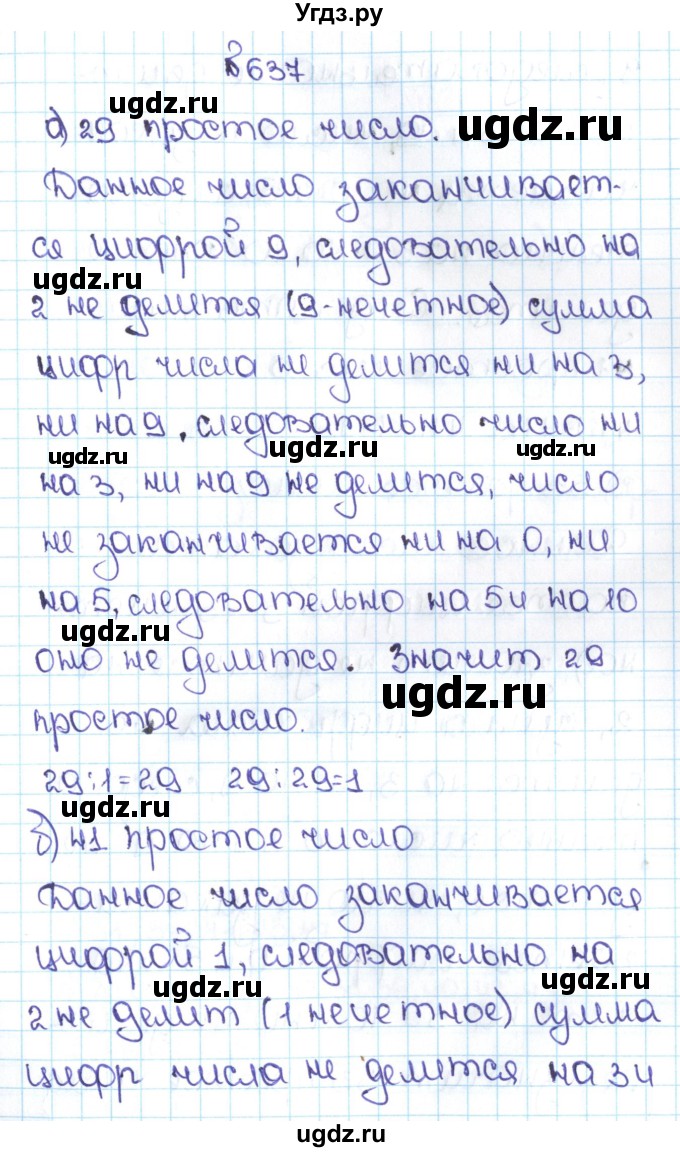 Угдз.ру
№637
ugdz.ru
а) 29 простое число. ugdz.ru
Данное число заканчивает-
ся цифрой 9, следовательно на
ugdz.ru
2 не делится (9-нечетное) сумма
цифр числа не делится ни на 3,
ни на 9, следовательно число ни
ugdz.ru ugdz.ru ugdz.ru
на 3, ни на 9 не делится, число
не заканчивается ни на 0, ни
на 5, следовательно на 5 и на 10
ugdz.ru
оно не делится. Значит 29
ugdz.ru
простое число.
29:1=29 29:29=1
ugdz.ru
б) 41 простое число
Данное число заканчивается
цифрой 1, следовательно на
ugdz.ru ugdz.ru
2 не делит (1 нечетное) сумма
цифр числа не делится на 3 и
ugdz.ru